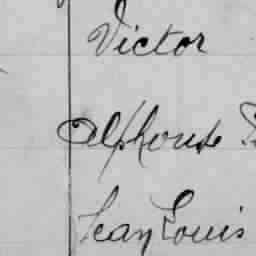 Victor
Alphonse
Jean Louis